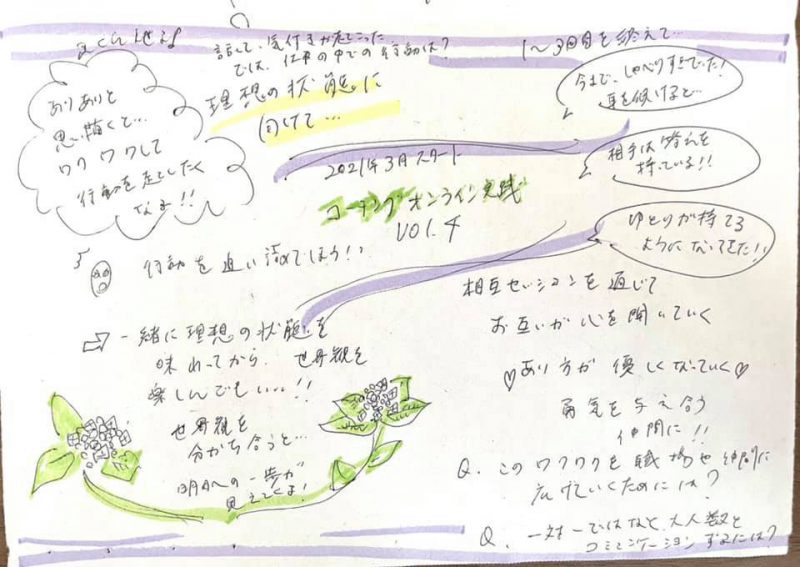 話して、気付きが起こった
では、仕事の中での行動は?
理想の状態に
向けて…
ありありと
思い描くと…
ワクワクして
行動を起こしたく
なる!!
1~3回目を終えて…
今まで、しゃべりすぎていた!
耳を傾けると…
相手は答えを
持っている!!
ゆとりが持てる
ようになってきた!!
2021年3月スタート
コーチングオンライン実践
VOl.4
行動を追い詰めてしまう!!
一緒に理想の状態を
味わってから、世界観を
楽しんでもいい…!!
世界観を
分かち合うと…
明日への一歩が
見えてくる!
相互セッションを通じて
お互いが心を開いていく
♡あり方が優しくなっていく♡
勇気を与え合う
仲間に!!
Q. このワクワクを職場や仲間に
広げていくためには?
Q. 一対一ではなく大人数と
コミュニケーションするには?